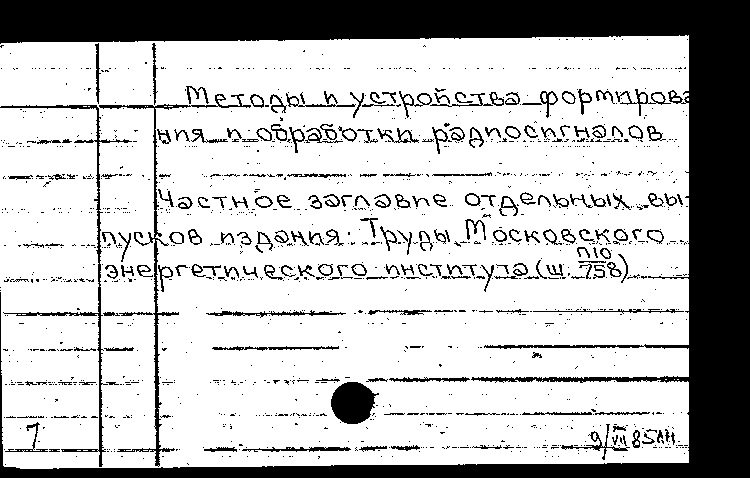 Методы и устройства формирова
ния и обработки радиосигналов
Частное заглавие отдельных вы-
пусков издания: Труды Московского
энергетического института (ш. П10/758)
7
9/VII 85